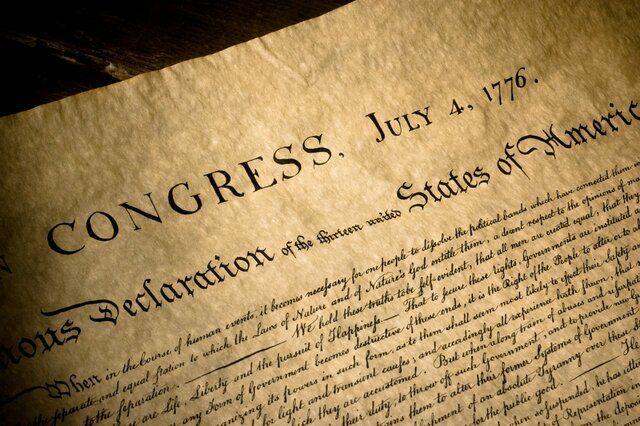 N CONGRESS, JULY 4, 1776.
mous Declaration of the thirteen united States of Americ
When in the Course of human events, it becomes necessary for one people to dissolve the political bands which have connected them
the separate and equal station to which the Laws of Nature and of Nature's God entitle them, a decent respect to the opinions of ma
to the separation. We hold these truths to be self-evident, that all men are created equal, that they
are Life Liberty and the pursuit of Happiness. That to secure these rights, Governments are instituted
any Form of Government becomes destructive of these ends, it is the Right of the People to alter or to
its powers in such form, as to them shall seem most likely to effect their Safety
light and transient causes; and accordingly all experience hath shewn, that
which they are accustomed. But when a long train of abuses and usurpat
their duty, to throw off such Government, and to provide new
them to alter their former Systems of Government.
of an absolute Tyranny over these
for the public good. He
so suspended, he has
of Representation